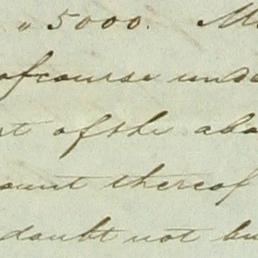 " 5000. M
of course und
rt of the abo
ount thereof
doubt not bu